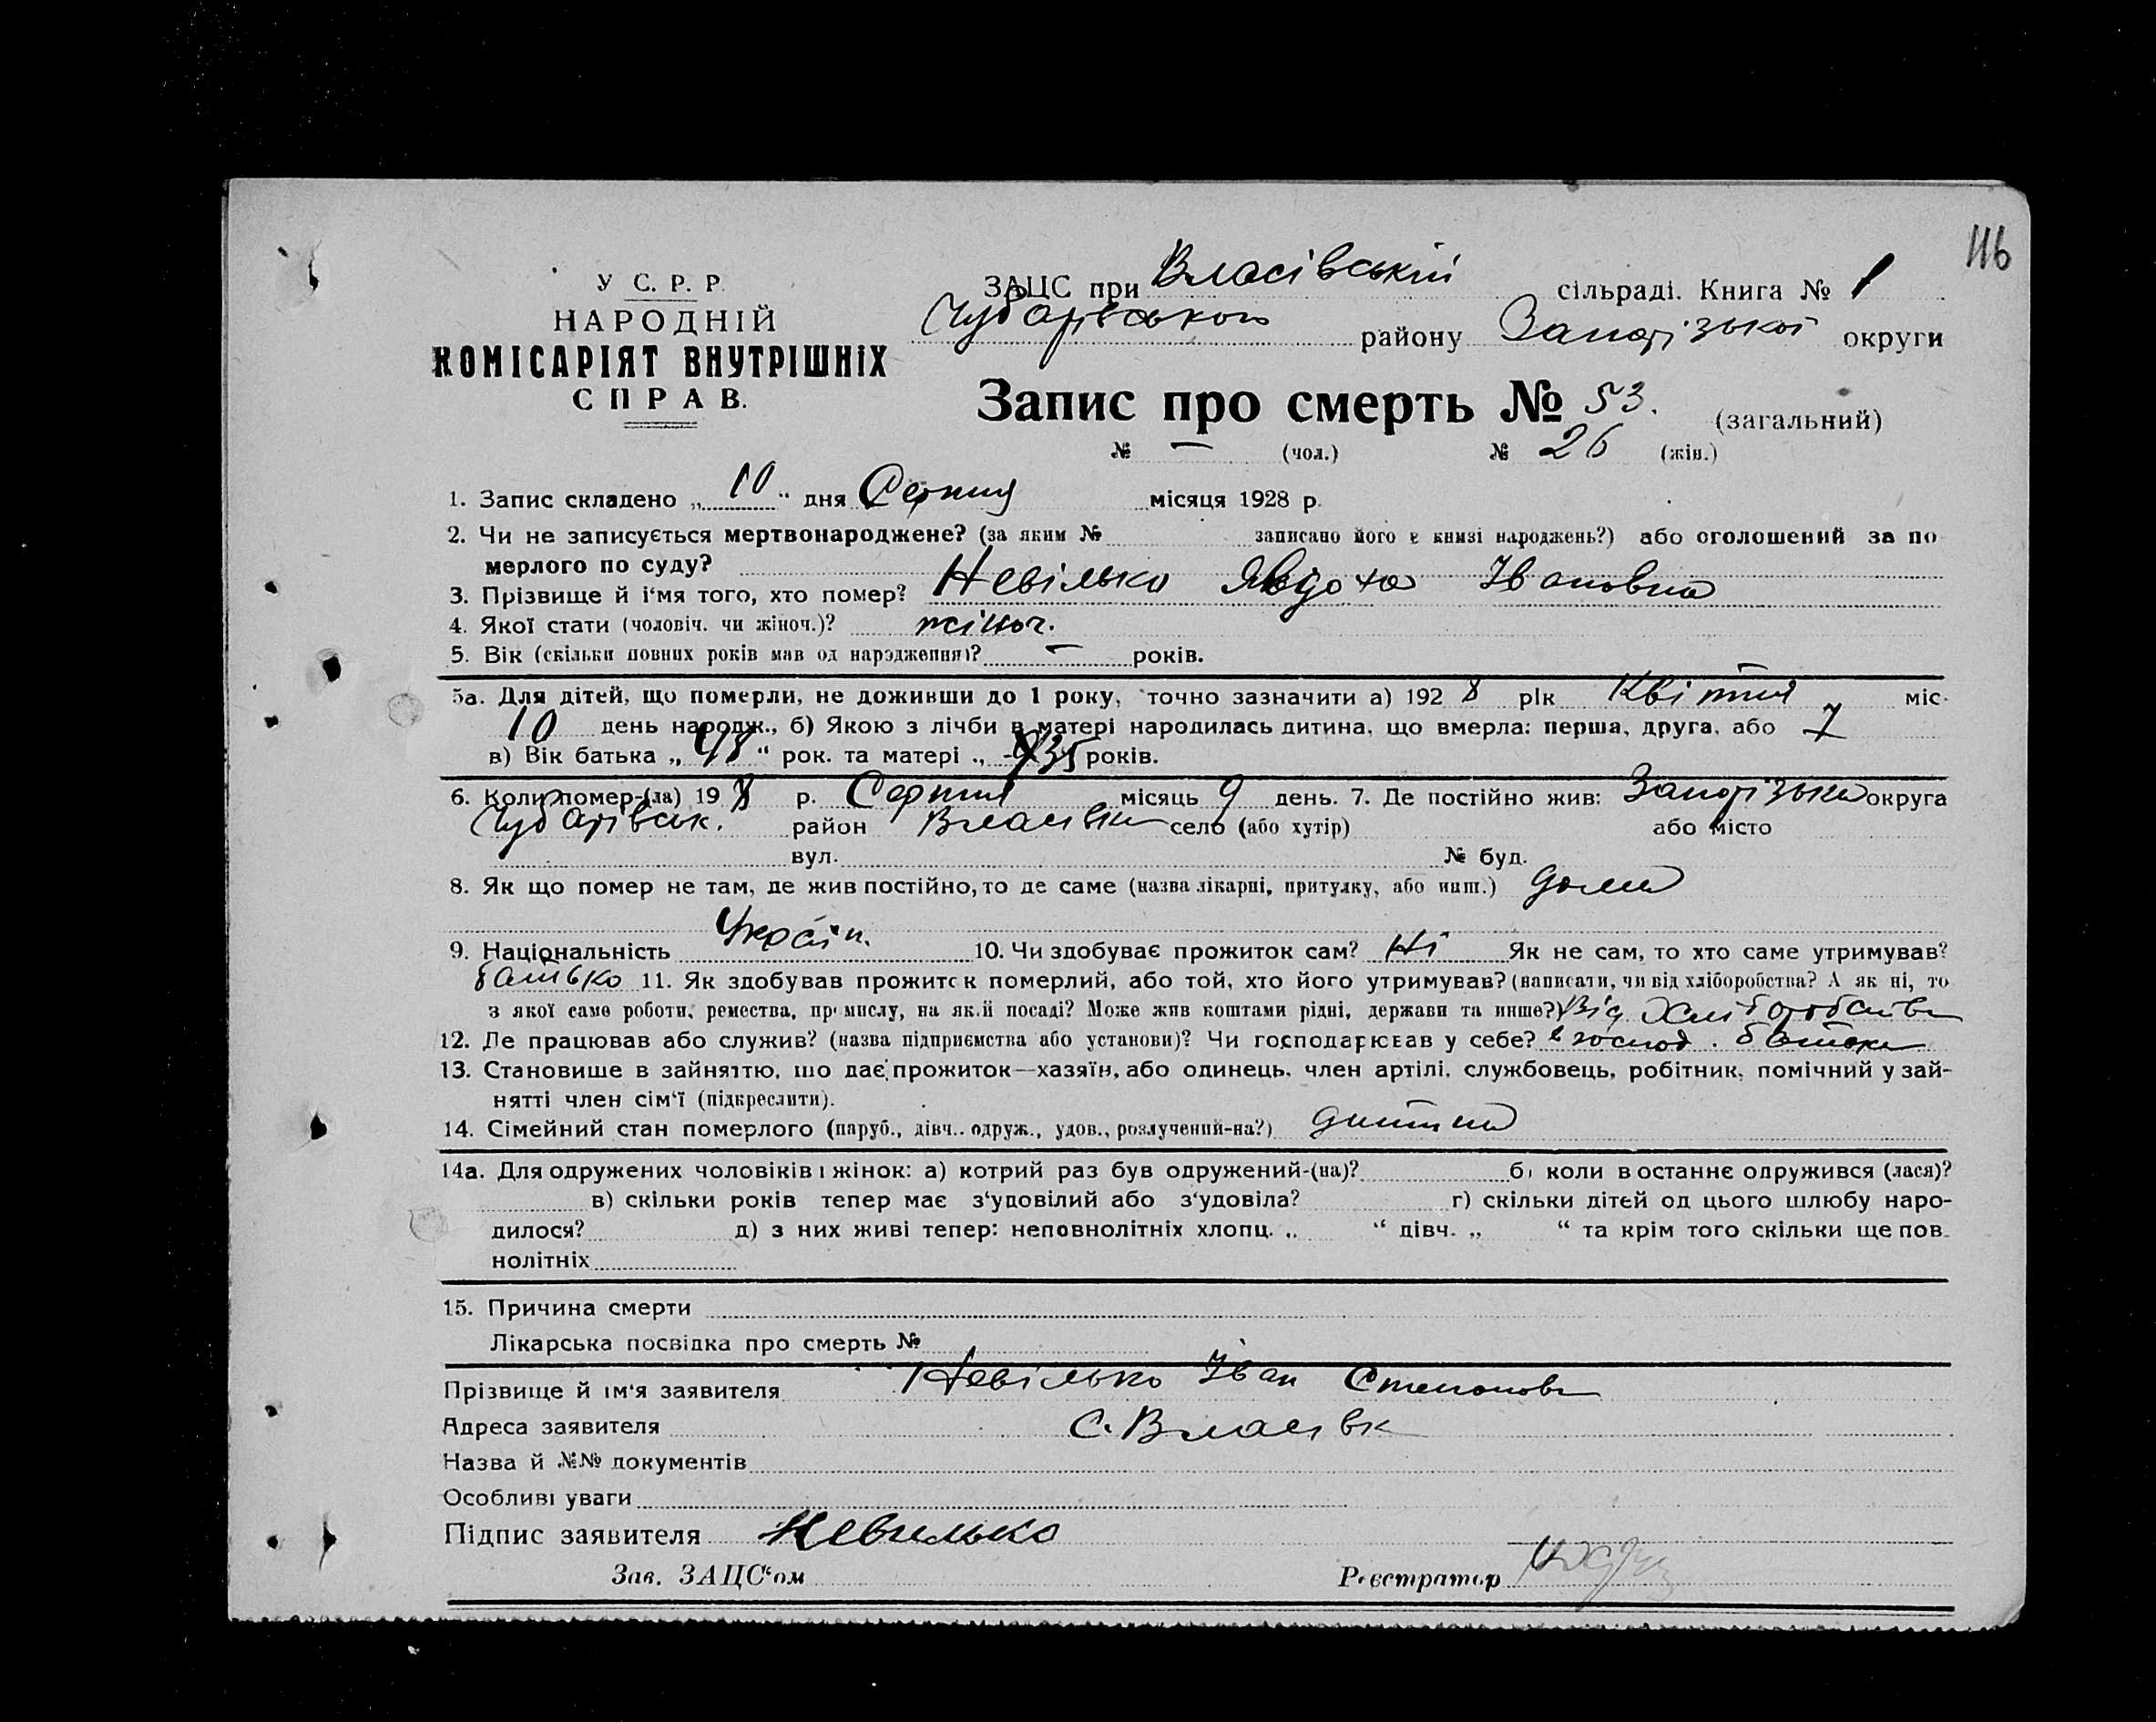 116
У С. Р. Р.
НАРОДНІЙ
КОМІСАРІЯТ ВНУТРІШНІХ
СПРАВ.
ЗАЦС при Власівській сільраді. Книга № 1
Чубарівського району Запорізької округи
Запис про смерть № 53. (загальний)
№ — (чол.) № 26 (жін.)
1. Запис складено „ 10 " дня Серпня місяця 1928 р.
2. Чи не записується мертвонароджене? (за яким № записано його в книзі народжень?) або оголошений за по
мерлого по суду?
3. Прізвище й і'мя того, хто помер? Невілько Явдоха Івановна
4. Якої стати (чоловіч. чи жіноч.)? жіноч.
5. Вік (скільки повних років мав од народження)? — років.
5а. Для дітей, що померли, не доживши до 1 року, точно зазначити а) 192 8 рік Квітня міс.
10 день народж., б) Якою з лічби в матері народилась дитина, що вмерла: перша, друга, або 7
в) Вік батька „ 48 " рок. та матері „ 35 років.
6. Коли помер-(ла) 19 8 р. Серпня місяць 9 день. 7. Де постійно жив: Запорізька округа
Чубарівськ. район Власівка село (або хутір) або місто
вул. № буд.
8. Як що помер не там, де жив постійно, то де саме (назва лікарні, притулку, або инш.) дома
9. Національність Україн. 10. Чи здобуває прожиток сам? Ні Як не сам, то хто саме утримував?
батько 11. Як здобував прожиток померлий, або той, хто його утримував? (написати, чи від хліборобства? А як ні, то
з якої саме роботи, ремества, промислу, на якій посаді? Може жив коштами рідні, держави та инше?) Від Хліборобства
12. Де працював або служив? (назва підприємства або установи)? Чи господарював у себе? в господ. батька
13. Становище в зайняттю, що дає прожиток—хазяїн, або одинець, член артілі, службовець, робітник, помічний у зай-
нятті член сім'ї (підкреслити).
14. Сімейний стан померлого (паруб., дівч., одруж., удов., розлучений-на?) дитина
14а. Для одружених чоловіків і жінок: а) котрий раз був одружений-(на)? б) коли востаннє одружився (лася)?
в) скільки років тепер має з'удовілий або з'удовіла? г) скільки дітей од цього шлюбу наро-
дилося? д) з них живі тепер: неповнолітніх хлопц. „ " дівч. „ " та крім того скільки ще пов-
нолітніх
15. Причина смерти
Лікарська посвідка про смерть №
Прізвище й ім'я заявителя Невілько Іван Степанови
Адреса заявителя С. Власівк
Назва й №№ документів
Особливі уваги
Підпис заявителя Невилько
Зав. ЗАЦС'ом Реєстратор